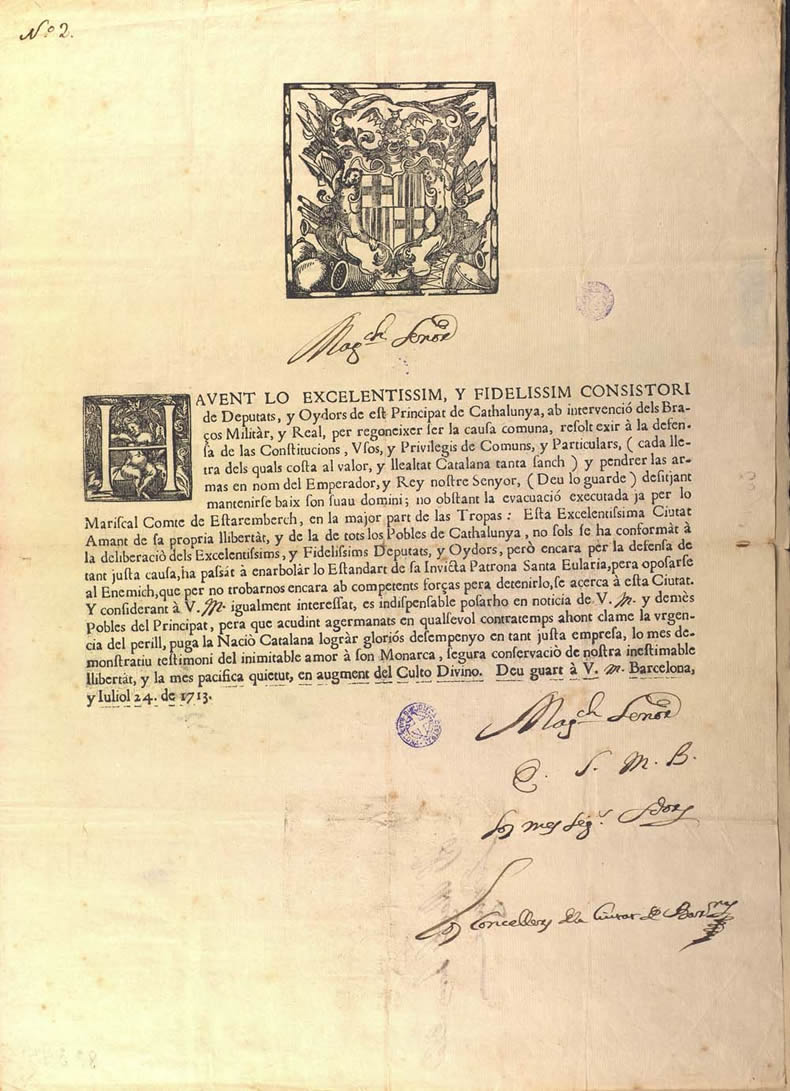 Nº 2.
Mag.ch Senor
HAVENT LO EXCELENTISSIM, Y FIDELISSIM CONSISTORI
de Deputats, y Oydors de eſt Principat de Cathalunya, ab intervenció dels Bra-
ços Militàr, y Real, per regoneixer ſer la cauſa comuna, reſolt exir à la defen-
ſa de las Conſtitucions, Vſos, y Privilegis de Comuns, y Particulars, ( cada lle-
tra dels quals coſta al valor, y llealtat Catalana tanta ſanch ) y pendrer las ar-
mas en nom del Emperador, y Rey noſtre Senyor, ( Deu lo guarde ) deſitjant
mantenirſe baix ſon ſuau domini; no obſtant la evacuació executada ja per lo
Mariſcal Comte de Eſtaremberch, en la major part de las Tropas : Eſta Excelentiſſima Ciutat
Amant de ſa propria llibertàt, y de la de tots los Pobles de Cathalunya, no ſols ſe ha conformàt à
la deliberació dels Excelentiſſims, y Fideliſſims Deputats, y Oydors, però encara per la defenſa de
tant juſta cauſa, ha paſſàt à enarbolàr lo Eſtandart de ſa Invicta Patrona Santa Eularia, pera opoſarſe
al Enemich, que per no trobarnos encara ab competents forças pera detenirlo, ſe acerca à eſta Ciutat.
Y conſiderant à V. M. igualment intereſſat, es indiſpenſable poſarho en noticia de V. M. y demès
Pobles del Principat, pera que acudint agermanats en qualſevol contratemps ahont clame la vrgen-
cia del perill, puga la Naciò Catalana logràr gloriós deſempenyo en tant juſta empreſa, lo mes de-
monſtratiu teſtimoni del inimitable amor à ſon Monarca, ſegura conſervaciò de noſtra ineſtimable
llibertàt, y la mes pacifica quietut, en augment del Culto Divino. Deu guart à V. M. Barcelona,
y Iuliol 24. de 1713.
Mag.ch Senor
S. M. B.
Son mes seg.rs
Los Concellers de la Ciutat de Bar.na